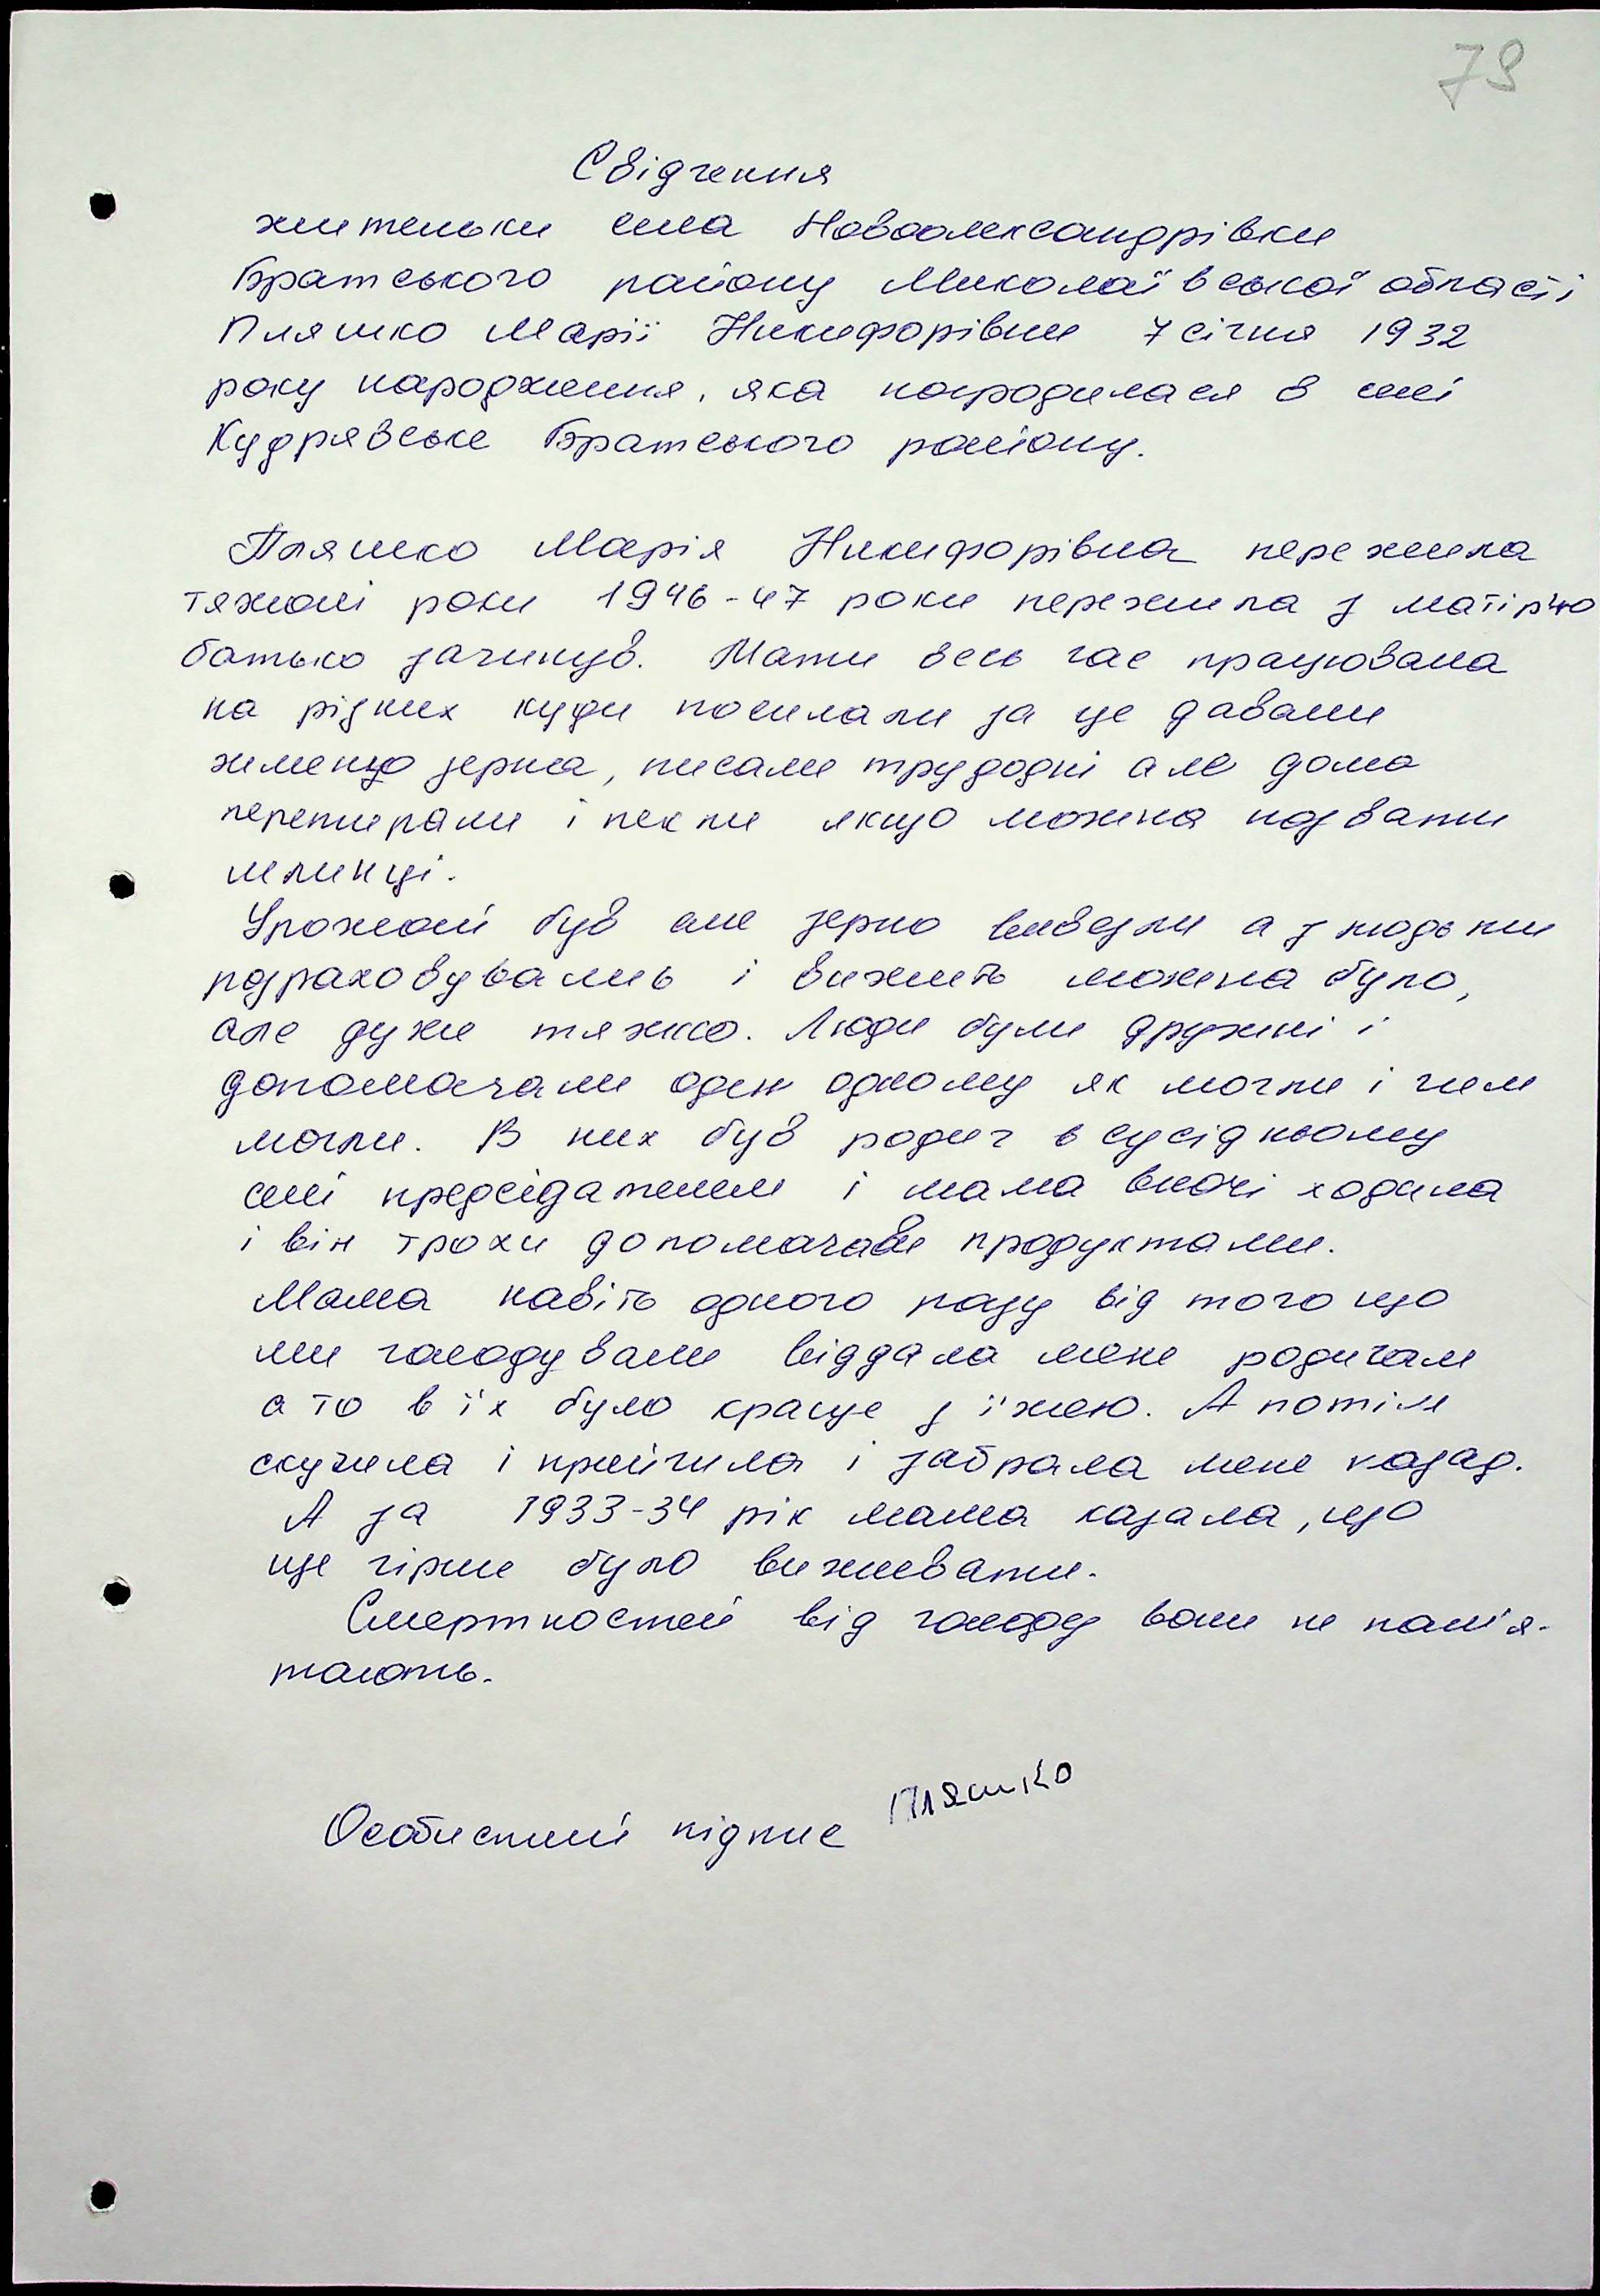 79
Свідчення
жительки села Новоолександрівки
Братського району Миколаївської області
Пляшко Марії Никифорівни 7 січня 1932
року народження, яка народилася в селі
Кудрявське Братського району.
Пляшко Марія Никифорівна пережила
тяжолі роки 1946-47 роки пережила з матір'ю
батько загинув. Мати весь час працювала
на різних куди посилали за це давали
жменцю зерна, писали трудодні але дома
перетирали і пекли якщо можна назвати
млинці.
Урожай був але зерно вивезли а з людьми
розраховувались і вижить можна було,
але дуже тяжко. Люди були дружні і
допомагали один одному як могли і чим
могли. В них був родич в сусідньому
селі предсідателем і мама вночі ходила
і він трохи допомагав продуктами.
Мама навіть одного разу від того що
ми голодували віддала мене родичам
а то в їх було краще з їжею. А потім
скучила і прийшла і забрала мене назад.
А за 1933-34 рік мама казала, що
ще гірше було виживати.
Смертностей від голоду вони не пам'я-
тають.
Особистий підпис Пляшко